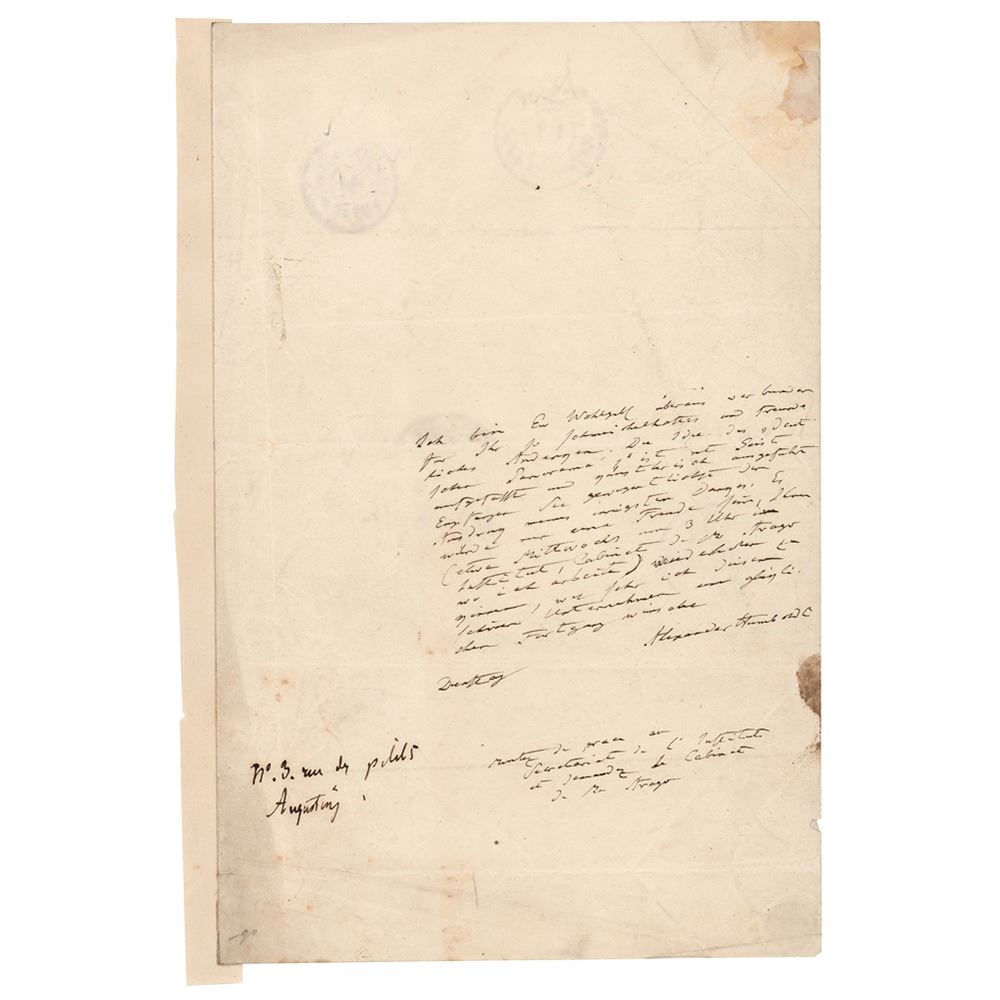 Ich bin Ew Wohlgeb überaus verbunden
für Ihr so schmeichelhaftes und freund
liches Andenken. Die Idee des "deut
schen Panorama" ist mit Geist
aufgefasst und ausgeführt
Empfangen Sie gewogentlichst den
Ausdruck meines innigsten Danges. Es
würde mir eine Freude sein, Ihnen
(etwa Mittwochs um 3 Uhr im
Institut, Cabinet de Mr Arago
wo ich arbeite)
wie sehr ich diesem
schönen Unternehmen einen glückli
chen Fortgang wünsche
Alexander Humboldt
Dienstag
montez de grace au
Secretariat de l'Institut
et demandez le Cabinet
de Mr Arago
N°. 3. rue des petits
Augustins
90